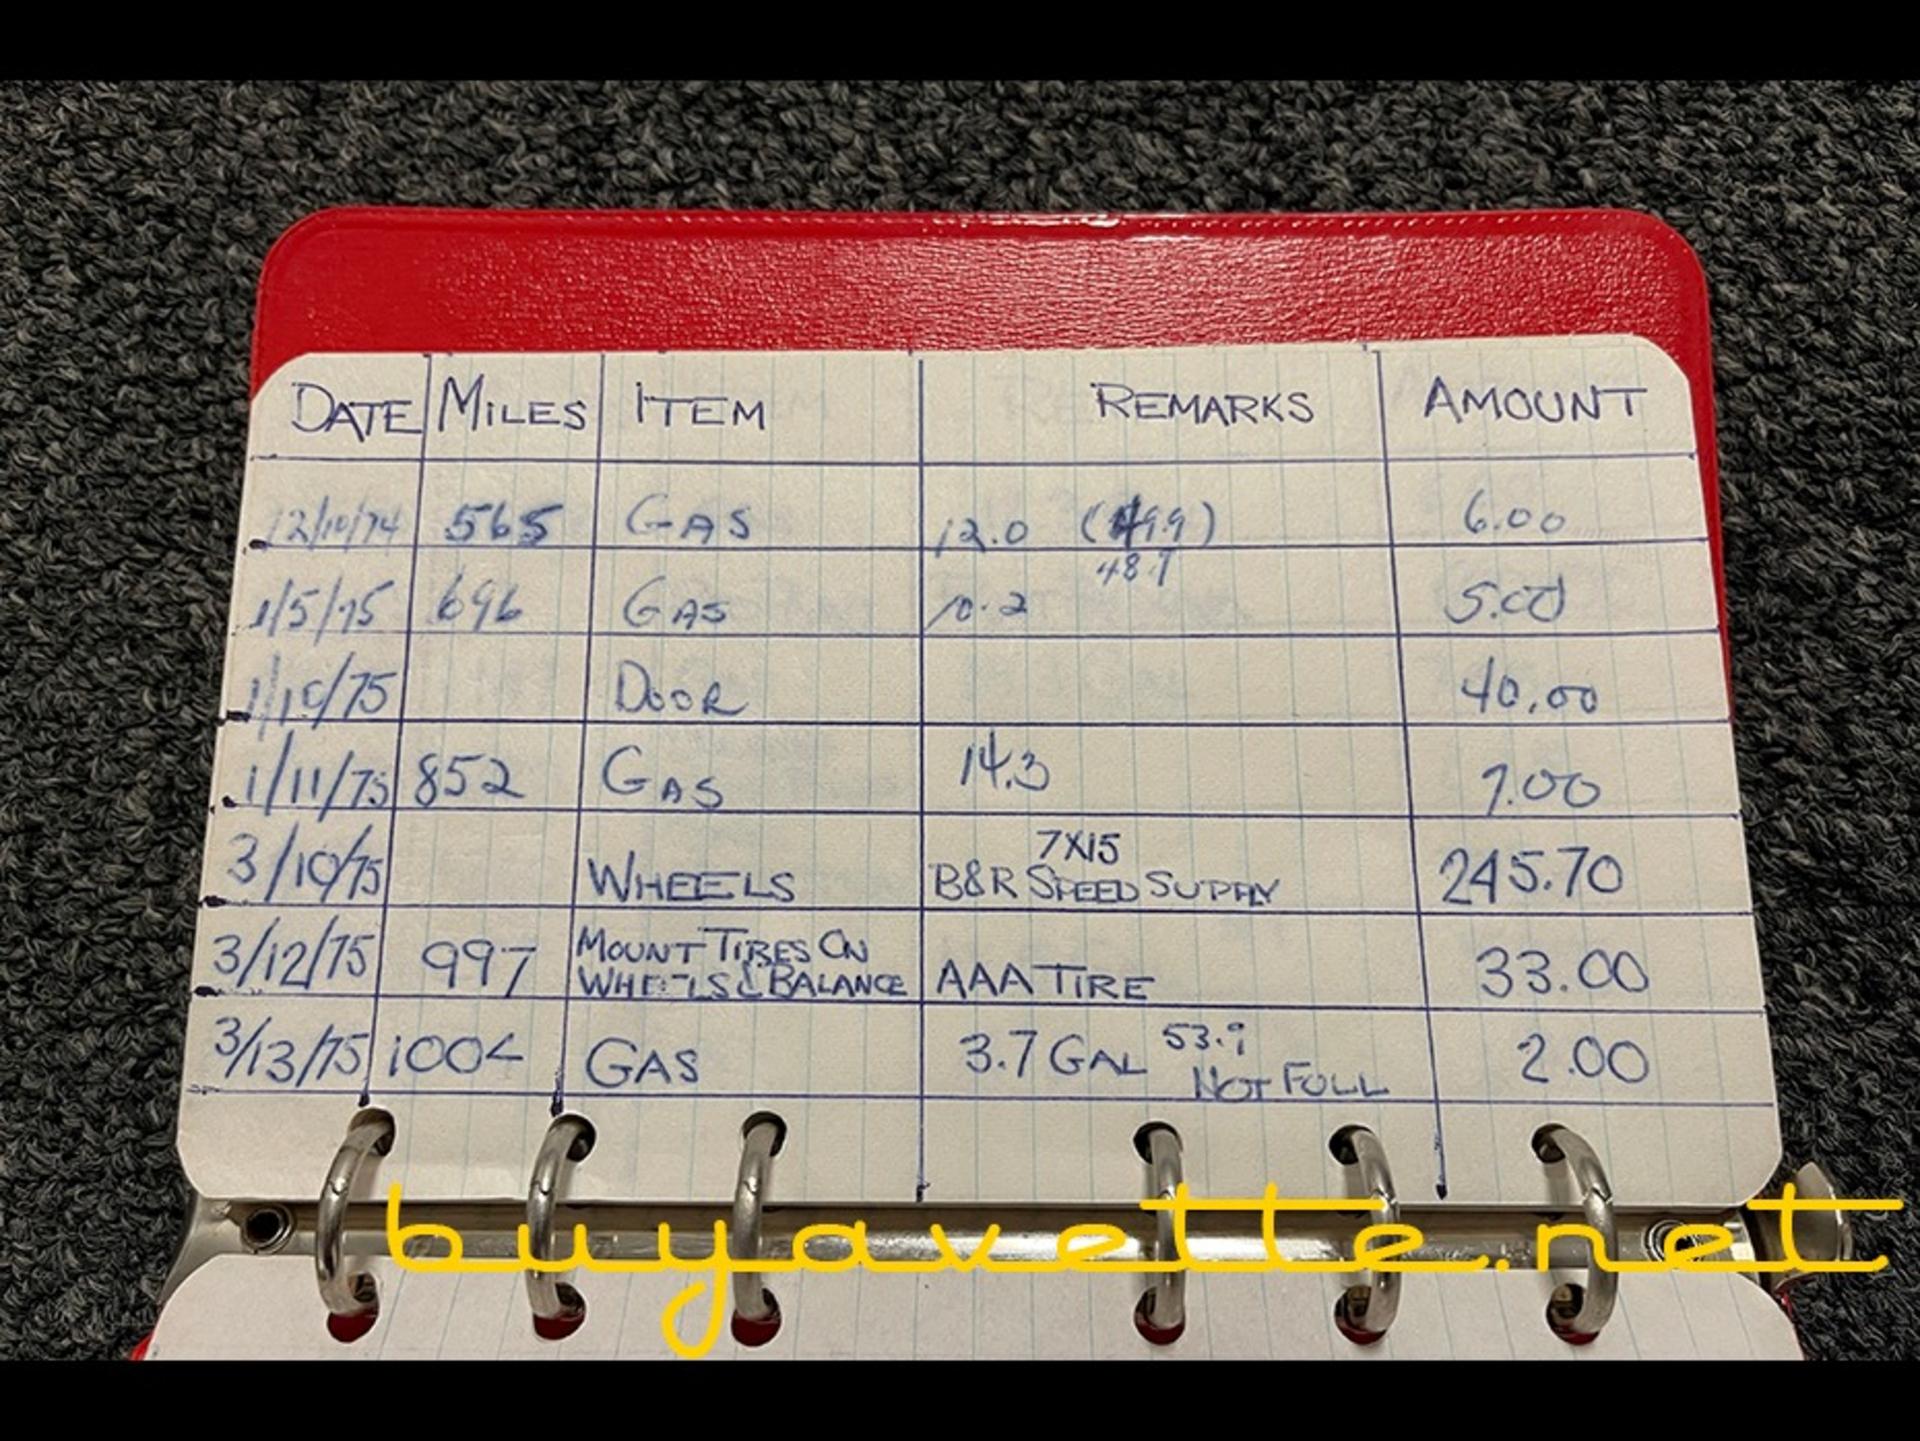 DATE MILES ITEM REMARKS AMOUNT
12/10/74 565 GAS 12.0 (49.9) 6.00
48.7
1/5/75 696 GAS 10.2 5.00
1/10/75 DOOR 40.00
1/11/75 852 GAS 14.3 7.00
7X15
3/10/75 WHEELS B&R SPEED SUPPLY 245.70
MOUNT TIRES ON
3/12/75 997 WHEELS & BALANCE AAA TIRE 33.00
3/13/75 GAS 3.7 GAL 53.9 2.00
NOT FULL
buyavette.net